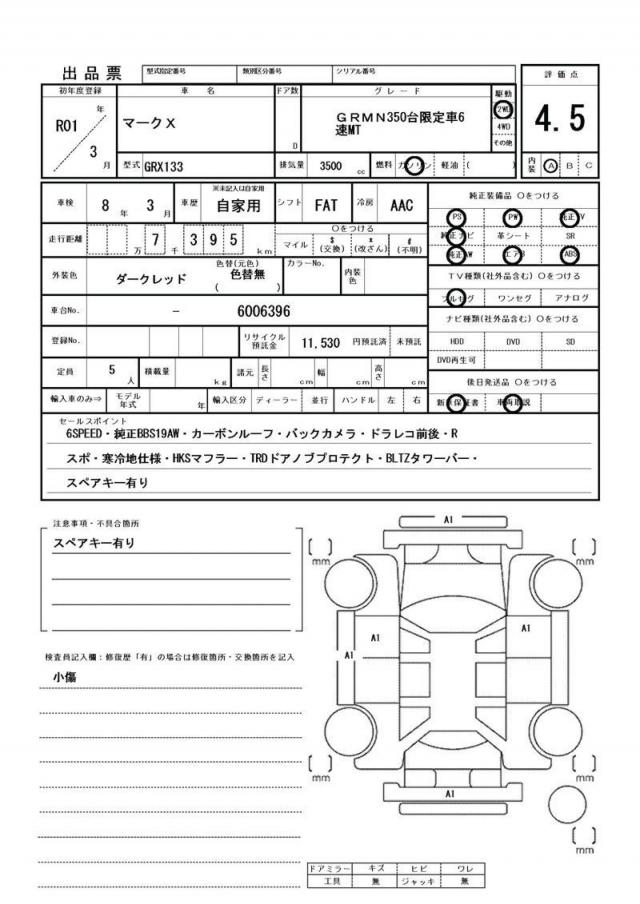 出品票 型式指定番号 類別区分番号 シリアル番号 評価点
初年度登録 車名 ドア数 グレード 駆動
R01 年 3 月 マークX D GRMN350台限定車6 2WD 4.5
速MT 4WD
その他
型式 GRX133 排気量 3500 cc 燃料 ガソリン 軽油 ( ) 内装 A B C
車検 8 年 3 月 車歴 ※未記入は自家用 自家用 シフト FAT 冷房 AAC 純正装備品 ○をつける
走行距離 万 7 千 395 km ○をつける PS PW 純正TV
マイル $(交換) x(改ざん) #(不明) 純正ナビ 革シート SR
外装色 ダークレッド 色替(元色) 色替無 ( ) カラーNo. 内装色 純正AW エアB ABS
TV種類(社外品含む) ○をつける
車台No. － 6006396 フルセグ ワンセグ アナログ
ナビ種類(社外品含む) ○をつける
登録No. リサイクル預託金 11,530 円預託済 未預託 HDD DVD SD
DVD再生可
定員 5 人 積載量 kg 諸元 長さ cm 幅 cm 高さ cm 後日発送品 ○をつける
輸入車のみ⇒ モデル年式 年 輸入区分 ディーラー 並行 ハンドル 左 右 新車保証書 車両取説
セールスポイント
6SPEED・純正BBS19AW・カーボンルーフ・バックカメラ・ドラレコ前後・R
スポ・寒冷地仕様・HKSマフラー・TRDドアノブプロテクト・BLTZタワーバー・
スペアキー有り
注意事項・不具合箇所
スペアキー有り
検査員記入欄：修復歴「有」の場合は修復箇所・交換箇所を記入
小傷
A1
[ ] mm [ ] mm
A1 A1
A1
[ ] mm [ ] mm
A1
[ ] mm
ドアミラー キズ ヒビ ワレ
工具 無 ジャッキ 無